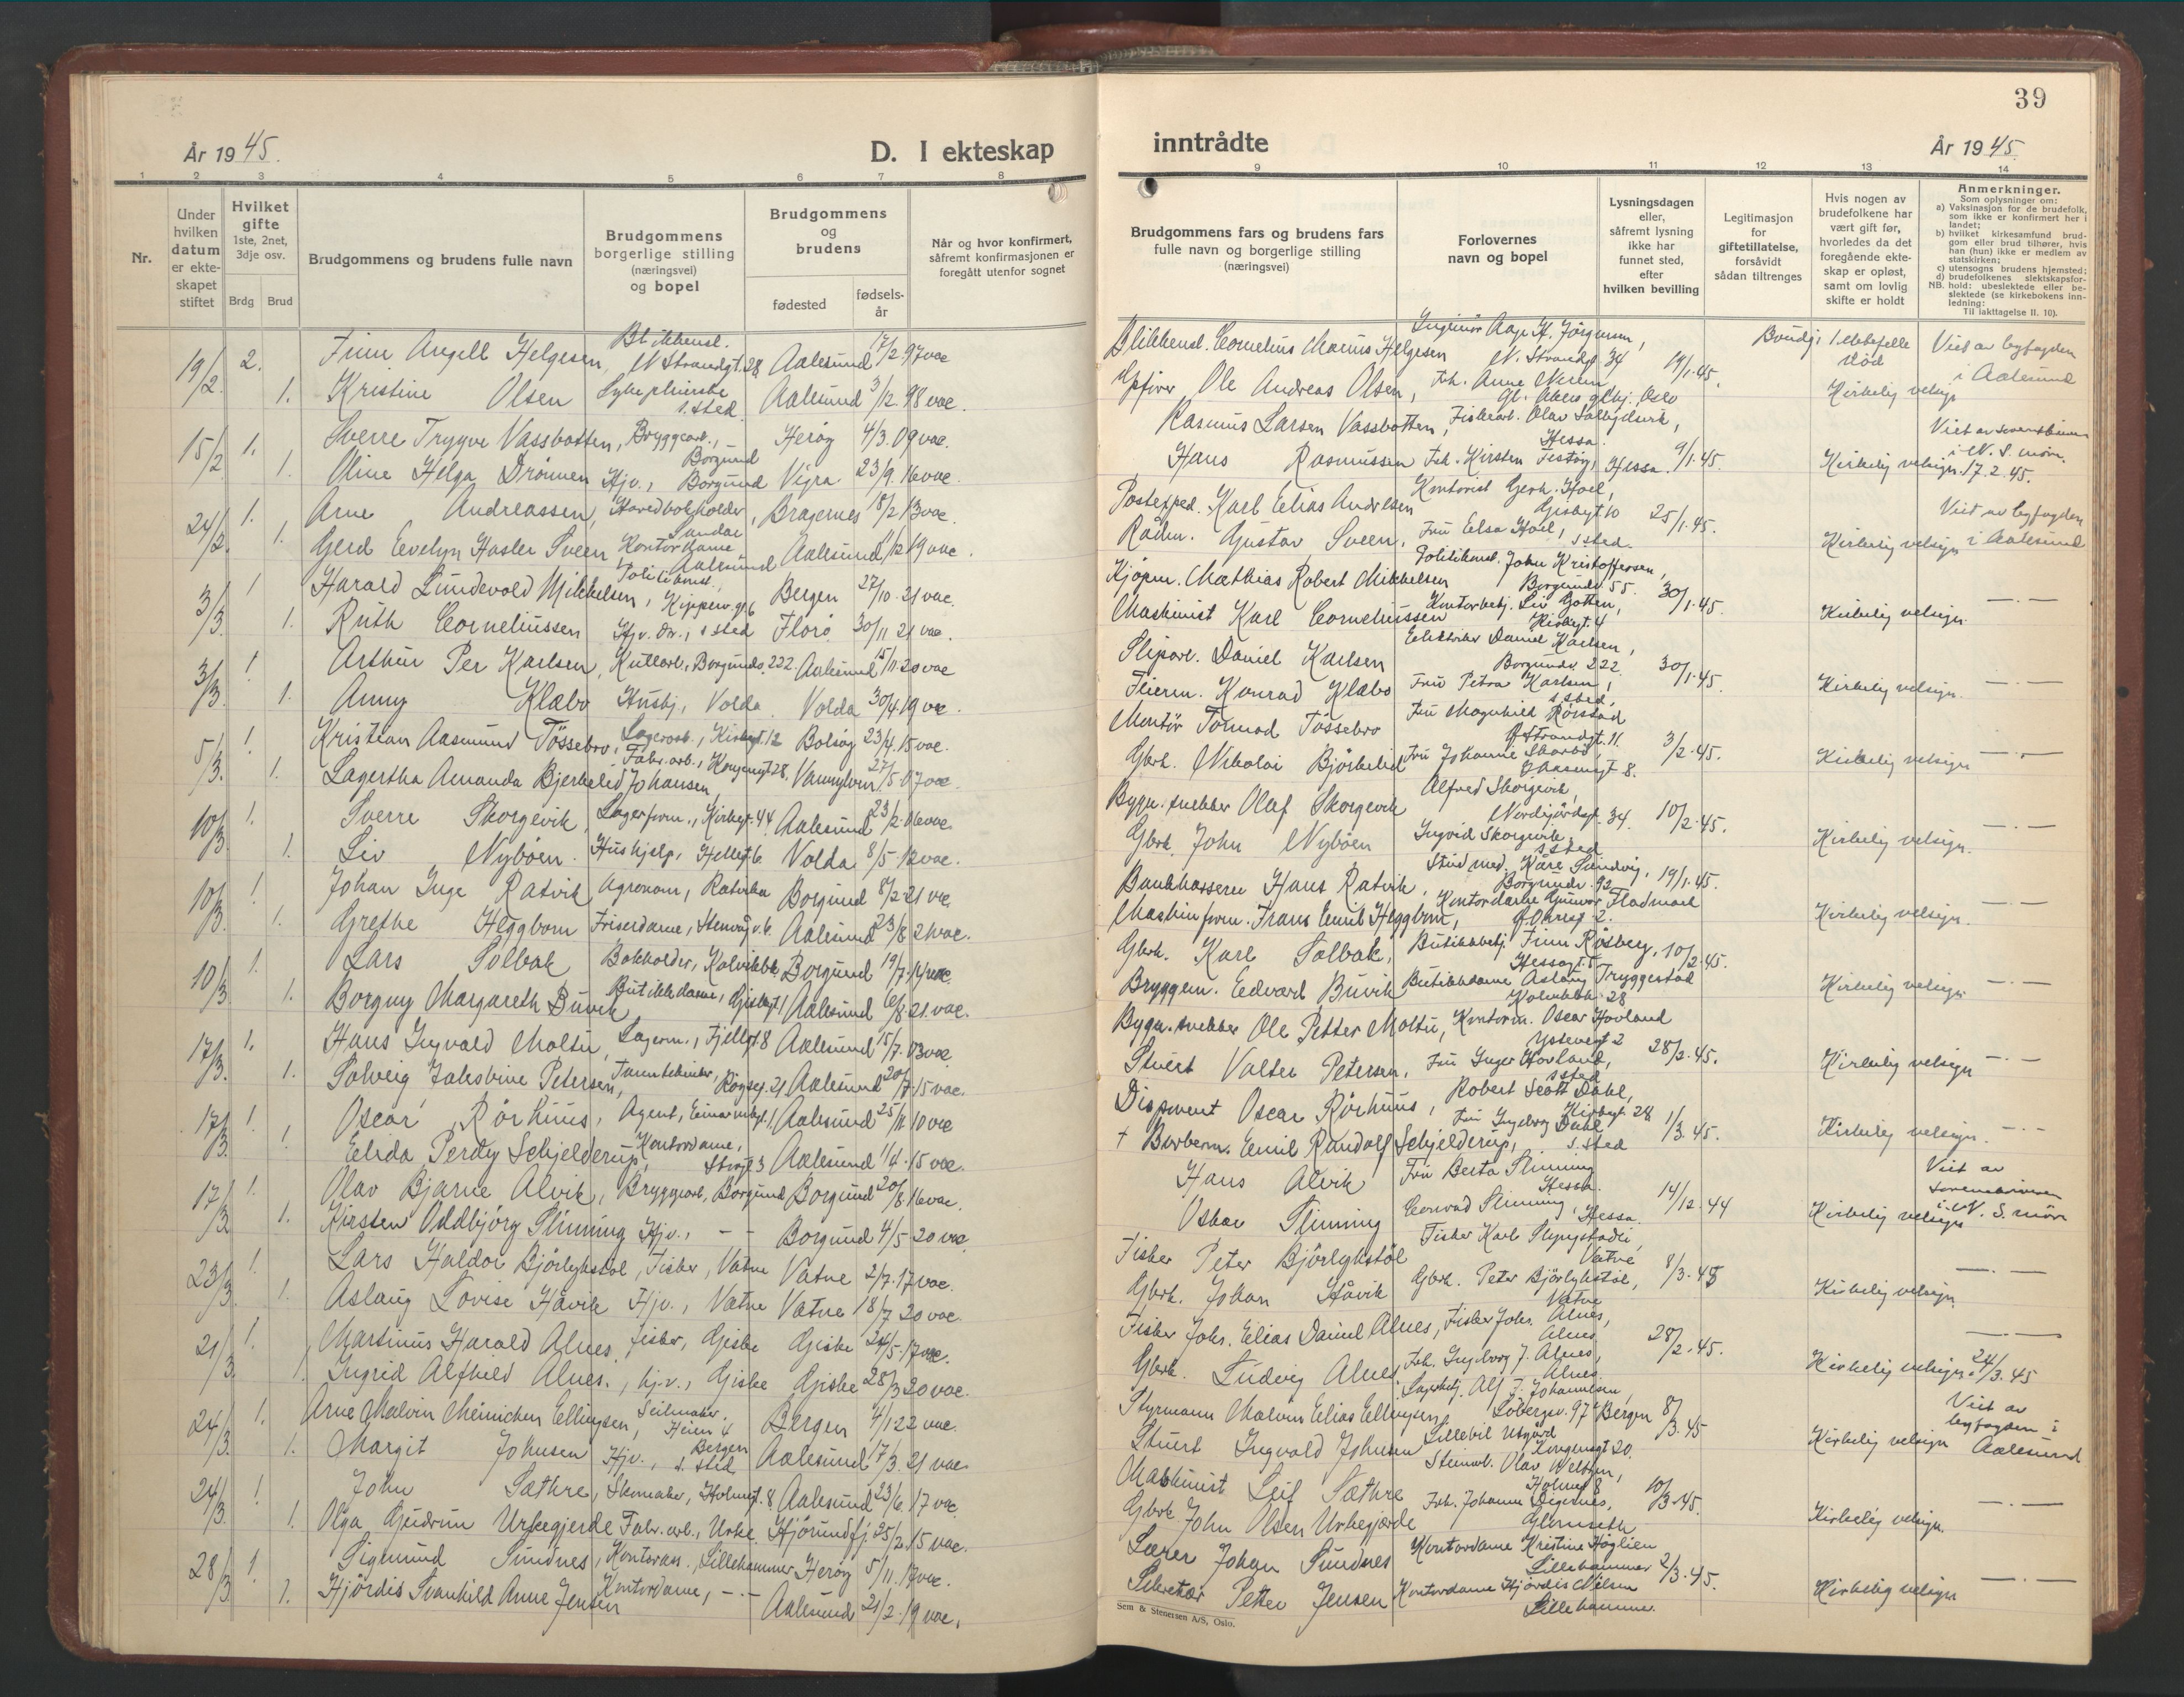 39
År 1945.
D. I ekteskap
inntrådte
År 1945.
1 2 3 4 5 6 7 8
9 10 11 12 13 14
Nr.
Under hvilken datum er ekteskapet stiftet
Hvilket gifte
1ste, 2net, 3dje osv.
Brdg Brud
Brudgommens og brudens fulle navn
Brudgommens borgerlige stilling (næringsvei) og bopel
Brudgommens og brudens
fødested
fødselsår
Når og hvor konfirmert, såfremt konfirmasjonen er foregått utenfor sognet
Brudgommens fars og brudens fars fulle navn og borgerlige stilling (næringsvei)
Forlovernes navn og bopel
Lysningsdagen eller, såfremt lysning ikke har funnet sted, efter hvilken bevilling
Legitimasjon for giftetillatelse, forsåvidt sådan tiltrenges
Hvis nogen av brudefolkene har vært gift før, hvorledes da det foregående ekteskap er opløst, samt om lovlig skifte er holdt
Anmerkninger.
Som oplysninger om:
a) Vaksinasjon for de brudefolk, som ikke er konfirmert her i landet;
b) hvilket kirkesamfund brudgom eller brud tilhører, hvis han (hun) ikke er medlem av statskirken;
c) utensogns brudens hjemsted;
d) brudefolkenes slektskapsforhold: ubeslektede eller beslektede (se kirkebokens innledning:
NB.
Til iakttagelse II. 10).
19/2. 2. Finn Angell Helgesen, Blikkensl. N. Strandgt. 28 Aalesund 17/2 97 vac
1. Kristine Olsen Sykepleierske s. sted Aalesund 3/12. 98 vac.
15/2 1. Sverre Trygve Vassbotten, Bryggearb., Borgund Herøy 4/3. 09 vac.
1. Oline Helga Drønnen Hjv., Borgund Vigra 23/9. 16 vac.
24/2. 1. Arne Andreassen, Hovedbokholder, Sandar Bragernes 18/2 13 vac.
1. Gerd Evelyn Hasler Sveen Kontordame Aalesund Aalesund 11/12 19 vac.
3/3. 1 Harald Lundevold Mikkelsen, Politikonst., Kipperv.gt. 6 Bergen 27/10. 21 vac.
1. Ruth Corneliussen Hjv. dr., s sted Florø 30/11 21 vac.
3/3. 1 Arthur Per Karlsen, Kullarb., Borgundv. 222. Aalesund 15/11. 20 vac
1. Anny Klæbo Hushj., Volda Volda 30/4. 19 vac.
5/3. 1 Kristian Aasmund Tössebro, Lagerarb., Kirkegt. 12 Bolsøy 23/4. 15 vac.
1. Lagertha Amanda Bjerkelid Johansen, Fabr. arb., Kongensgt. 28. 27/5. 07 vac.
10/3. 1. Sverre Skorgevik, Lagerform., Kirkegt. 44 Aalesund 23/2. 06 vac.
1. Liv Nybøen. Hushjelp, Hellegt. 6. Volda 8/5. 12 vac.
10/3. 1 Johan Inge Ratvik Agronom, Ratvika Borgund 8/2 21 vac.
1. Grethe Heggbom Friserdame, Stenvåg v. 6. Aalesund 23/8 21 vac.
10/3. 1 Lars Solbak Bokholder, Kolvikbk Borgund 19/7. 14 vac.
1. Borgny Margareth Buvik Butikkdame, Giskegt 1 Aalesund 6/8. 21. vac.
17/3. 1. Hans Ingvald Moltu, Lagerm., Fjellgt. 8 Aalesund 15/7. 03 vac
1. Solveig Jakobine Petersen, Tanntekniker, Røysegt. 21, Aalesund 20/7. 15 vac.
17/3. 1. Oscar Rörhuus, Agent, Einarvikgt. 1, Aalesund 25/11. 10 vac
1. Elida Perdy Schjelderup, Kontordame, Storgt 3 Aalesund 1/4. 15 vac.
17/3 1. Olav Bjarne Alvik, Bryggearb., Borgund Borgund 20/8. 16 vac.
1. Kirsten Oddbjörg Slinning Hjv., - - Borgund 4/5. 20 vac.
23/3. 1. Lars Haldor Björlykstöl, Fisker, Vatne Vatne 2/7. 17 vac.
1. Aslaug Lovise Håvik Hjv., Vatne Vatne 18/7 20 vac.
21/3. 1. Martinus Harald Alnes, fisker, Giske Giske 24/5. 17 vac.
1. Ingrid Alfhild Alnes., hj.v., Giske Giske 28/3 20 vac.
24/3. 1. Arne Malvin Meinichen Ellingsen, Seilmaker, Heien 4 Bergen Bergen 4/1. 22 vac.
1. Margit Johnsen Hjv., s. sted Aalesund 17/3. 21 vac.
24/3. 1 John Sæthre, Skomaker, Holmgt. 8. Aalesund 23/6. 17 vac.
1. Olga Gudrun Urkegjerde Fabr. arb., Urke. Hjørundfj. 25/2. 15 vac.
28/3 1. Sigmund Sundnes, Kontorass., Lillehammer Herøy 5/11. 17 vac.
1. Hjördis Svanhild Anne Jensen Kontordame, -.- Aalesund 21/2. 19 vac.
Blikkensl. Cornelius Marius Helgesen Ingeniør Aage H. Jörgensen, N. Strandgt 34 19/1. 45. Brudgs 1. ektefelle död Viet av byfogden i Aalesund
Opsyer Ole Andreas Olsen, Frk. Anne Gl. Akers Oslo Kirkelig velsign
Rasmus Larsen Vassbotten, Fiskearb. Olav Hessa. Viet av sorenskriveren i N. S. møre.
Hans Rasmussen Frk. Kirsten Festøy, Hessa. 9/1. 45. Kirkelig velsign. 17. 2. 45.
Postexped. Karl Elias Andresen Kontorist Gerh. Hoel, Giskegt. 10 25/1. 45. Viet av byfogden i Aalesund
Rådm. Gustav Sveen, Fru Elsa Hoel, s sted. Kirkelig velsign
Kjøpm. Mathias Robert Mikkelsen Politikonst. John Kristoffersen, Borgundv. 55. 30/1. 45. - . -
Maskinist Karl Corneliussen Kontorbetj. Liv Gotten, Kirkegt. 4 Kirkelig velsign
Sliparb. Daniel Karlsen Elektriker Daniel Karlsen, Borgundv. 222 30/1. 45. - . -
Feierm. Konrad Klæbo Fru Petra Karlsen, s. sted, Kirkelig velsign.
Montör Tormod Tössebro Fru Magnhild Rørstad Ø. Strandgt. 11. 3/2. 45. - . -
Gbrk. Nikolai Björkelid Fru Johanne Skarbö, 8. Kirkelig velsign
Bygn. snekker Olaf Skorgevik Alfred Skorgevik, 34. 10/2. 45. - . -
Gbrk. John Nybøen Ingrid Skorgevik, s sted Kirkelig velsign.
Bankkasserer Hans Ratvik, Stud. med. Kåre Sundvig, Borgundv. 92 19/1. 45. - . -
Maskinform. Frans Emil Heggbom, Kontordame Gunvor Fladmark 2. Kirkelig velsign.
Gbrk. Karl Solbak, Butikkbetj. Finn Røsberg, Hessagt. 5 10/2. 45. - . -
Bryggem. Edvard Buvik Butikkdame Aslaug Tryggestad Kolvikbk. 28 Kirkelig velsign
Bygn. snekker Ole Petter Moltu, Kontorm. Oscar Hovland Ystenesgt 2 28/2. 45. - . -
Stuert Valter Petersen, Fru Inger Hovland, s sted Kirkelig velsign
Disponent Oscar Rörhuus, Robert Scott Dahl, Kirkegt. 28 1/3. 45. - . -
† Barberm. Emil Randolf Schjelderup, Fru Ingeborg Dahl s. sted Kirkelig velsign.
Hans Alvik Fru Berta Slinning Hessa. 14/12. 44 Viet av sorenskriveren i N. S. møre
Oskar Slinning Conrad Slinning, Hessa. Kirkelig velsign
Fisker Peter Björlykstöl Fisker Karl Slyngstadli, Vatne 8/3. 45 - . -
Gbrk. Johan Håvik Gbrk. Peter Björlykstöl, Vatne Kirkelig velsign
Fisker Johs. Elias Daniel Alnes, Fisker Johs. Alnes, Alnes 28/2. 45. - . -
Gbrk. Ludvig Alnes Frk. Ingeborg J. Alnes, Alnes Kirkelig velsign. 24/3. 45
Styrmann Malvin Elias Ellingsen, Lagerbetj. Alf J. Johannesen, Løbergsv. 97 Bergen 8/3. 45 Viet av byfogden i Aalesund
Stuert Ingvald Johnsen Lillebil Utgård 20. Kirkelig velsign
Maskinist Leif Sæthre Steinarb. Olav Holmgt 8 10/3. 45. - . -
Gbrk. John Olsen Urkegjærde Frk. Johanne Digernes, Kirkelig velsign.
Lærer Johan Sundnes Kontordame Kristine Höglien Lillehammer 2/3. 45. - . -
Sekretær Petter Jensen Kontordame Hjördis Nilsen Lillehammer. Kirkelig velsign
Sem & Stenersen A/S, Oslo.